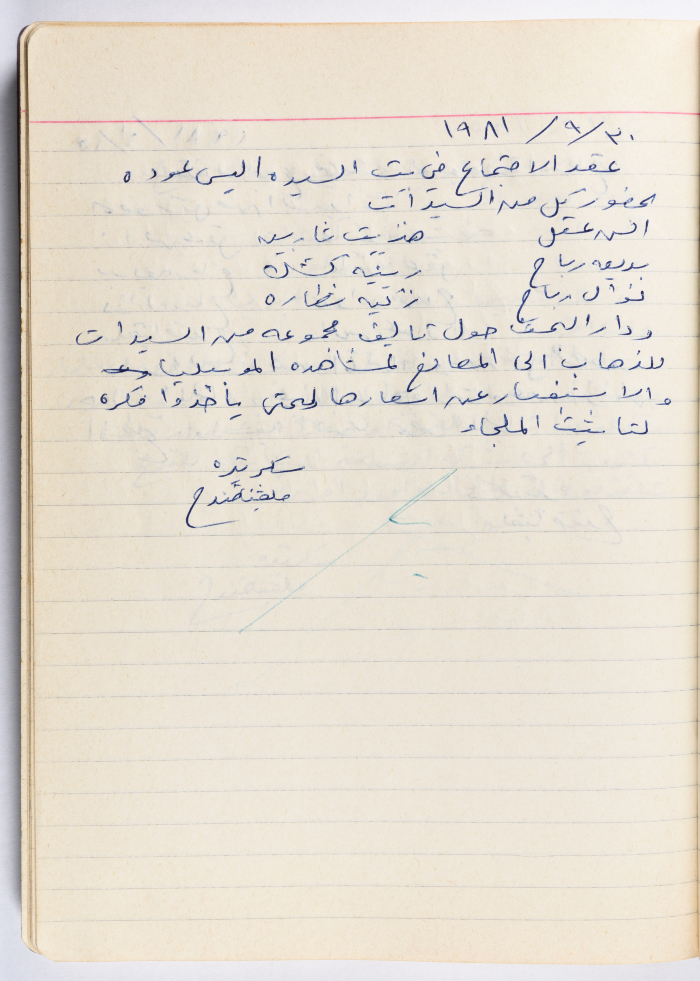 ١٩٨١ /٩/٣٠
عقد الاجتماع في بيت السيده اليس عوده
بحضور كل من السيدات
انس عقل هنريت غاريب
بديعه رباح رينيه كتشك
نوال رباح نظاره
ودار البحث حول تاليف مجموعه من السيدات
للذهاب الى المصانع لمشاهده الموبيليا
والاستفسار عن اسعارها لحتى يأخذوا فكره
لتاثيث الملجاء
سكرتيره